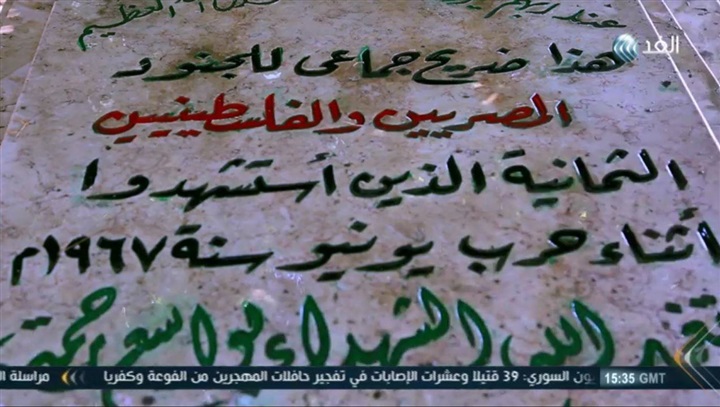 عند ربهم
العظيم
الغد
هذا ضريح جماعى للجنود
المصريين والفلسطينيين
الثمانية الذين أستشهدوا
أثناء حرب يونيو سنة ١٩٦٧م
الله الشهداء بواسع رحمته
15:35 GMT
يون السوري: 39 قتيلا وعشرات الإصابات في تفجير حافلات المهجرين من الفوعة وكفريا
مراسلة ال